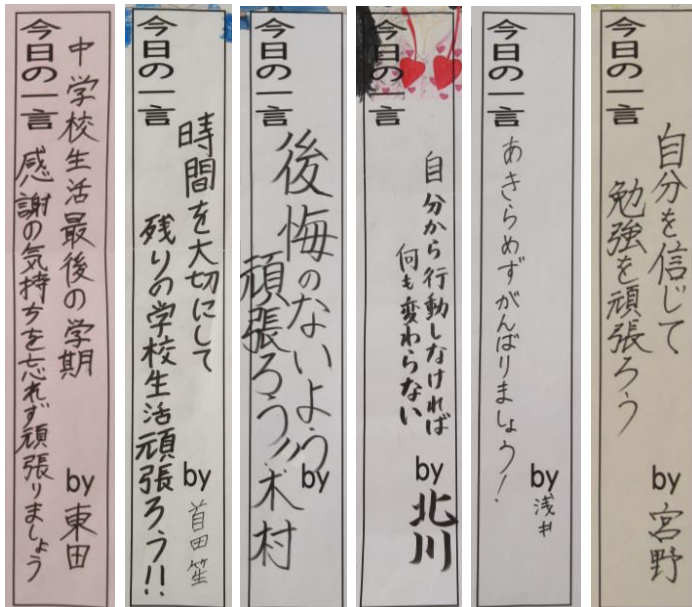 今日の一言
中学校生活最後の学期
感謝の気持ちを忘れず頑張りましょう
by 東田
今日の一言
時間を大切にして
残りの学校生活頑張ろう!!
by
今日の一言
後悔のないよう
頑張ろう!!
by 木村
今日の一言
自分から行動しなければ
何も変わらない
by 北川
今日の一言
あきらめずがんばりましょう!
by 浅井
今日の一言
自分を信じて
勉強を頑張ろう
by 宮野